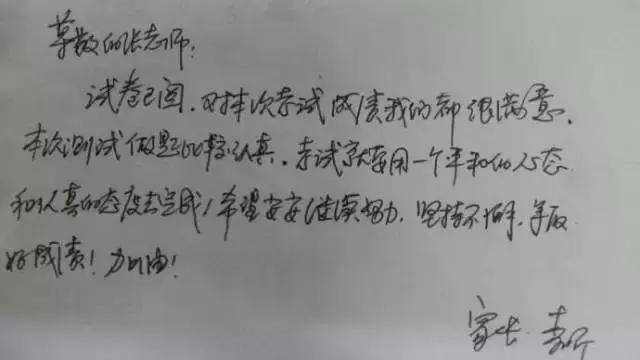 尊敬的张老师：
试卷已阅，对本次考试成绩我们都很满意，
本次测试做题比较认真，考试就要用一个平和的心态
和认真的态度去完成！希望安安继续努力，坚持不懈，争取
好成绩！加油！
家长：李